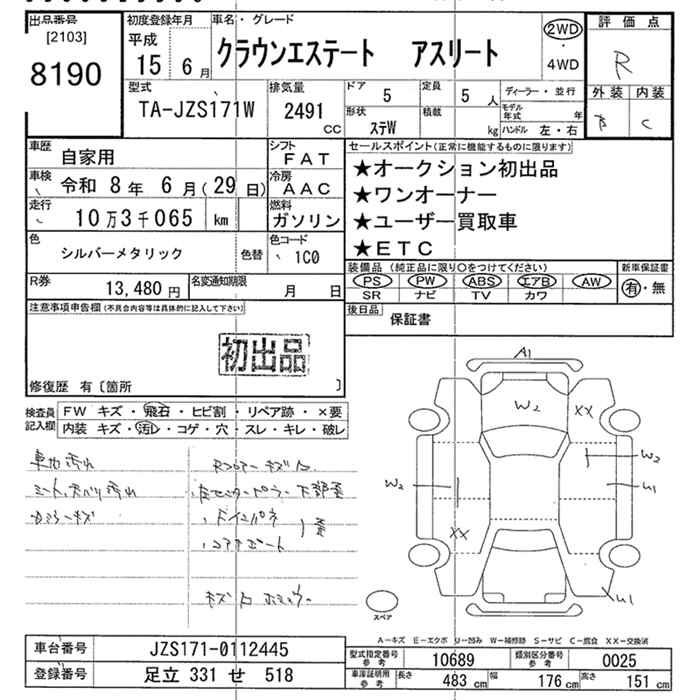 出品番号
[2103]
8190
初度登録年月
平成
15 6 月
車名・グレード
クラウンエステート アスリート
2WD
・
4WD
評価点
R
外装 内装
C
型式
TA-JZS171W
排気量
2491
CC
ドア
5
定員
5 人
形状
ステW
積載
kg
ディーラー・並行
モデル年式 年
ハンドル 左・右
車歴
自家用
シフト
FAT
車検
令和 8 年 6 月 (29 日)
冷房
AAC
走行
10 万 3 千 065 km
燃料
ガソリン
色
シルバーメタリック
色替
色コード
1C0
R券
13,480 円
名変通知期限
月 日
セールスポイント(正常に機能するものに限ります)
★オークション初出品
★ワンオーナー
★ユーザー買取車
★ETC
装備品 (純正品に限り○をつけてください)
PS PW ABS エアB AW
SR ナビ TV カワ
新車保証書
有・無
後日品
保証書
注意事項申告欄(不具合内容等は具体的に記入して下さい)
初出品
修復歴 有〔箇所 〕
検査員記入欄
FW キズ・飛石・ヒビ割・リペア跡・×要
内装 キズ・汚レ・コゲ・穴・スレ・キレ・破レ
A1
W2
XX
W2
U1
W2
XX
U1
スペア
A-キズ E-エクボ U-凹み W-補修跡 S-サビ C-腐食 XX-交換済
車台番号
JZS171-0112445
登録番号
足立 331 せ 518
型式指定番号
参考
10689
類別区分番号
参考
0025
車庫証明用
参考
長さ 483 cm
幅 176 cm
高さ 151 cm